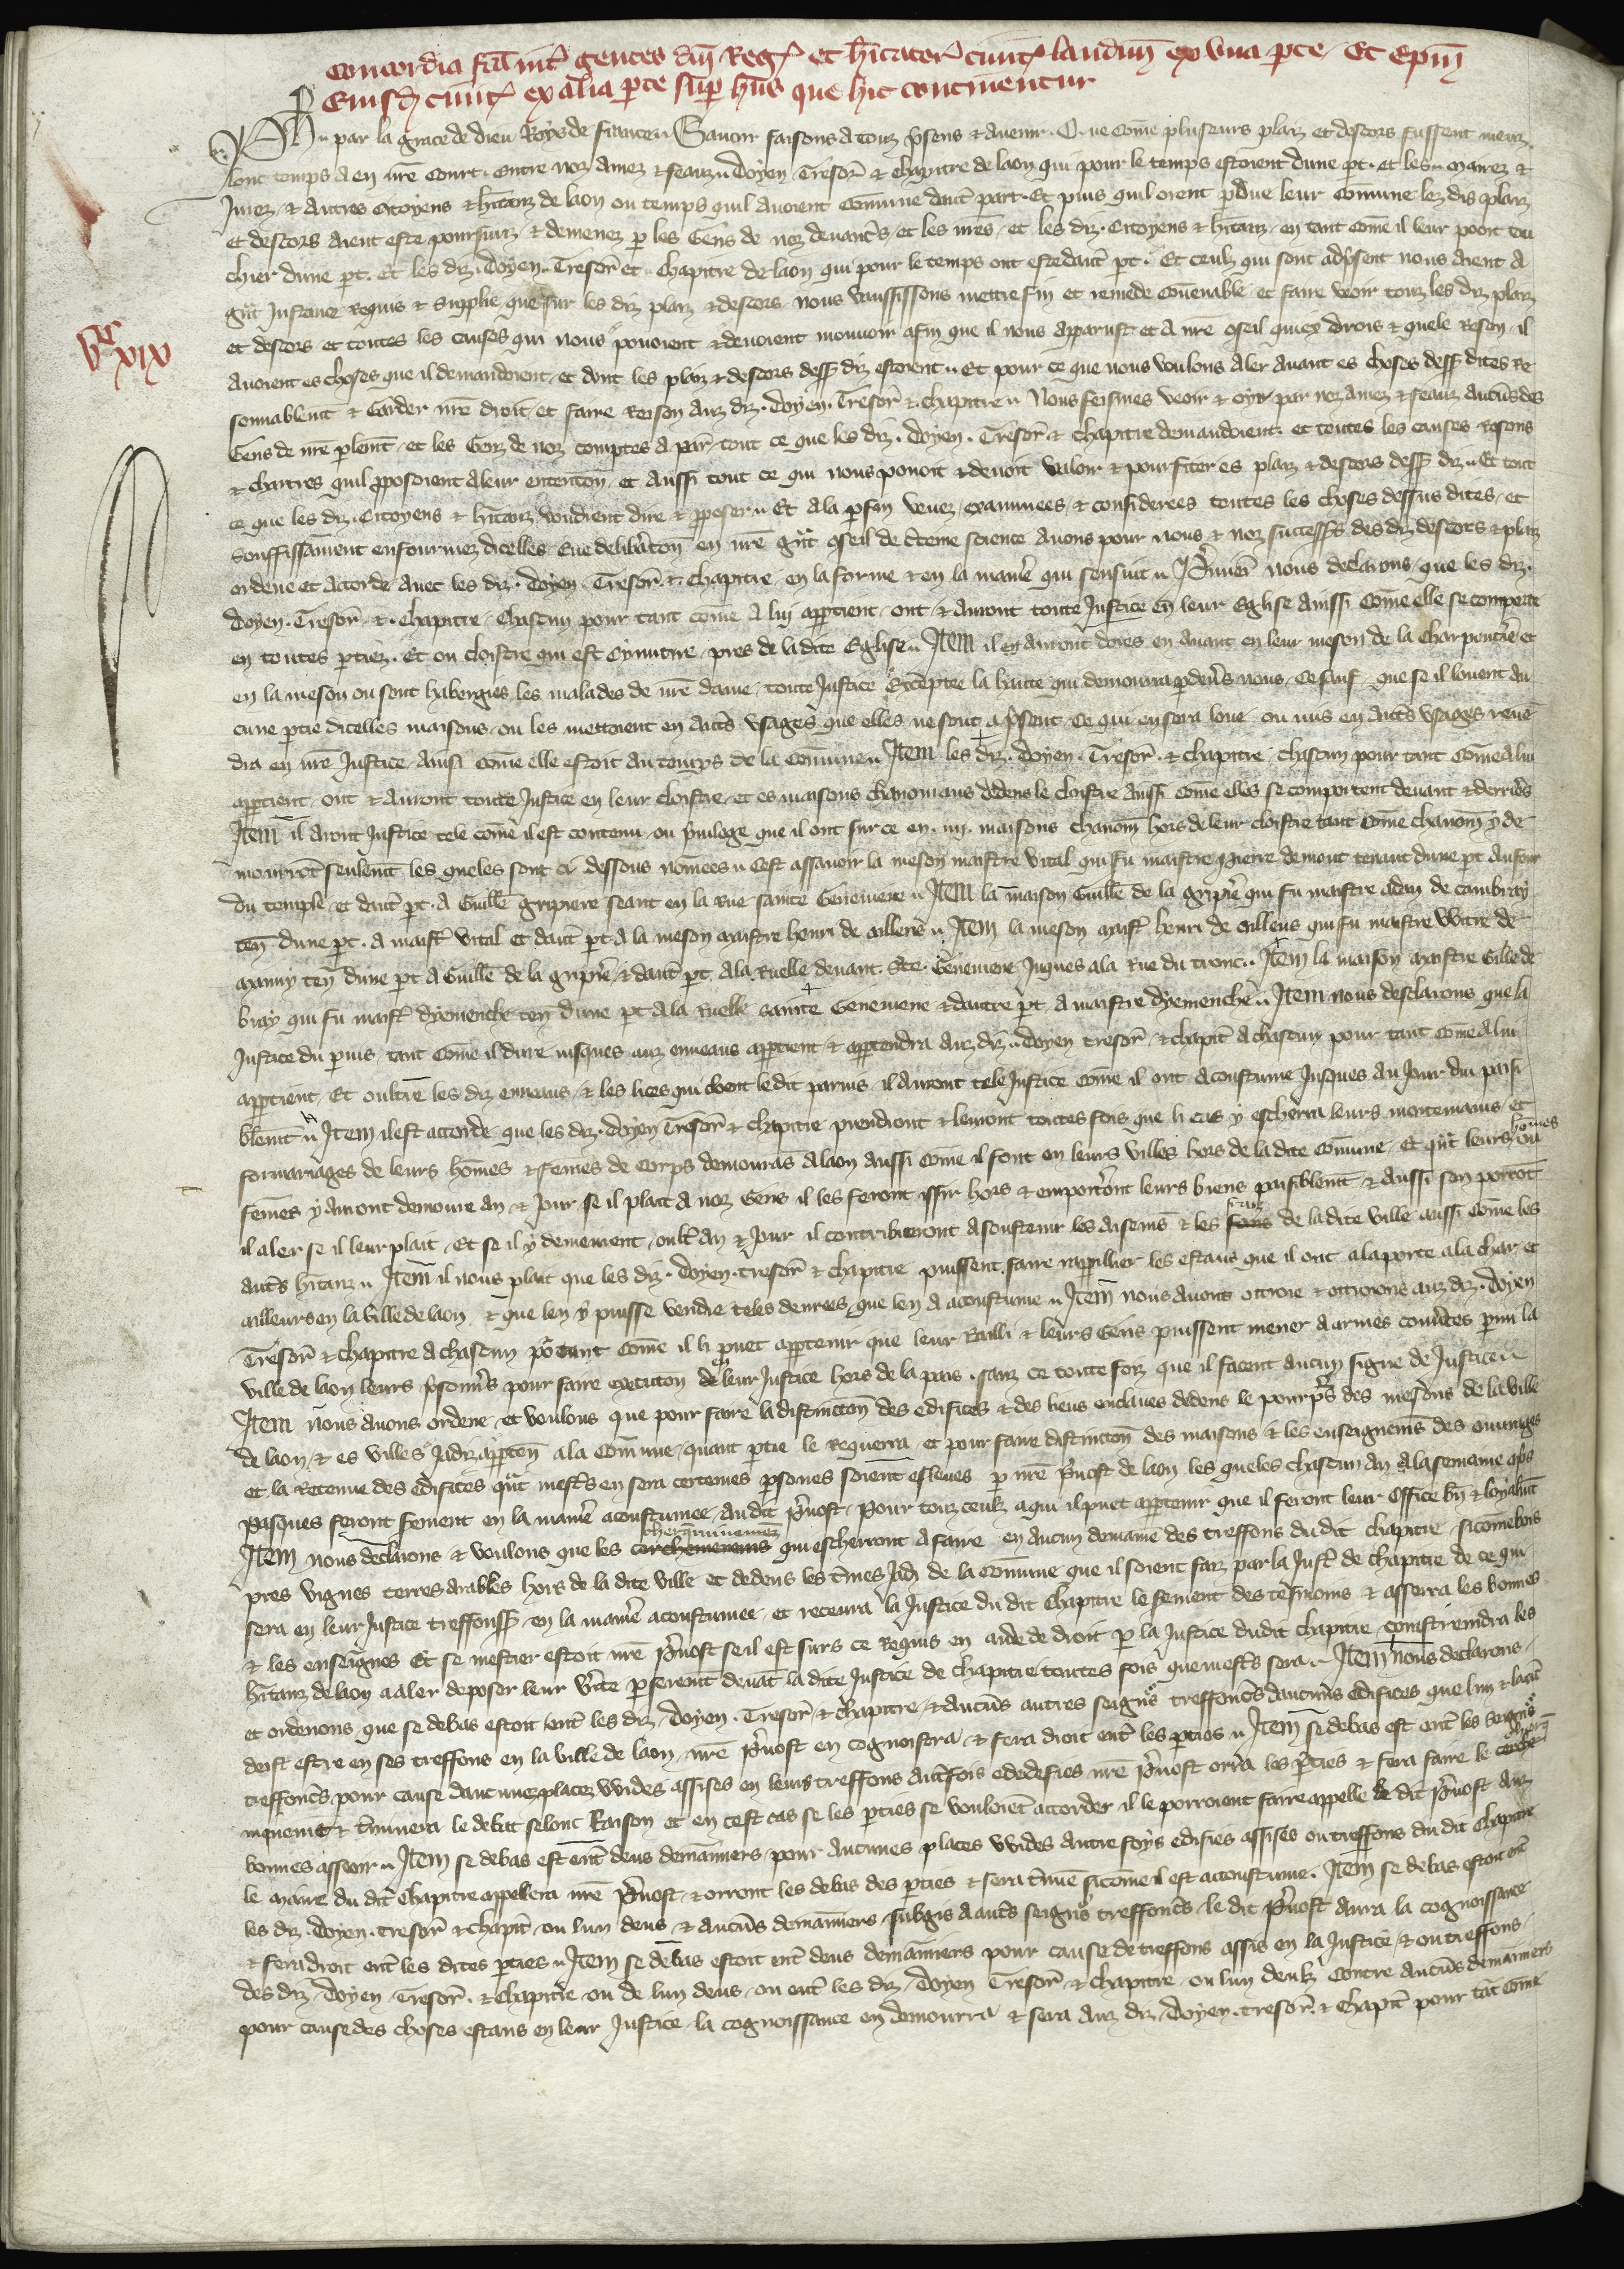 Concordia fca int gentes dni Reg et hitator civit laudun ex una pte Et Epm
Eiusd civit ex alia pte sup hiis que hic continentur
par la grace de dieu Roys de france Savoir faisons a touz psens & avenir Que come pluseurs plaiz et descors fussent meuz
lonc temps a en nre Court entre noz amez & feauz Doyen Tresor & chapitre de laon qui pour le temps estoient dune pt et les maires &
Jurez & autres Citoyens & hitanz de laon ou temps quil avoient Comune daut part Et puis quil orent pdue leur Comune lez dis plaiz
et descors aient este poursuiz & demenez p les Gens de noz devancs et les nres et les diz Citoyens & hitanz en tant come il leur pooit tou
chier dune pt Et les diz Doyen Tresor et chapitre de laon qui pour le temps ont este daut pt Et ceulz qui sont adpsent nous aient a
gnt Instance Requis & supplie que sur les diz plaiz & descors nous vausissons mettre fin et remede Covenable et faire veoir touz les diz plaiz
et descors et toutes les causes qui nous povoient & devoient mouvoir afin que il nous apparust et a nre oseil quiex drois & quele Reson il
avoient es choses que il demandoient et dont les plaiz & descors dess diz estoient Et pour ce que nous voulons aler avant es choses dess dites Re
sonnablent & Garder nre droit et faire Reison auz diz Doyen Tresor & chapitre Nous feismes veoir & oyr par noz amez & feauz aucuns des
Gens de nre plemt et les Genz de noz comptes a par tout ce que les diz Doyen Tresor & chapitre demandoient et toutes les causes Resons
& chartres quil pposoient a leur entencon et aussi tout ce qui nous povoit & devoit valoir & pourfiter es plaiz & descors dess diz Et tout
ce que les diz Citoyens & hitanz voudrent dire & pposer Et a la pfin veuez examinees & considerees toutes les choses dessus dites et
souffissament enfourmez dicelles Eue delibacon en nre gnt oseil de ctene science avons pour nous & noz successs des diz descors & plaiz
ordene et accorde avec les diz Doyen Tresor & chapitre en la forme & en la mane qui sensuit Primer nous declarons que les diz
Doyen Tresor & Chapitre Chascun pour tant come a luy apptient ont & auront toute Justice en leur Eglise aussi come elle se comporte
en toutes pties Et ou cloistre qui est Cymitire pres de la dite Eglise Item il en auront dores en avant en leur meson de la Charpentie et
en la meson ou sont habergies les malades de nre dame toute Justice Exceptee la haute qui demourra p devs nous Ce sauf que se il louent au
cune ptie dicelles maisons ou les mettoient en auts usages que elles ne sont apsent Ce qui en sera loue ou mis en auts usages reven
dra en nre Justice Ausi come elle estoit au temps de la Comune Item les diz Doyen Tresor & chapitre chascun pour tant come a lui
apptient ont & auront toute Justice en leur cloistre et es maisons chanoniaus dedens le cloistre aussi come elles se comportent devant & derriers
Item il aront Justice tele come il est contenu ou privilege que il ont sur ce en iiii maisons chanom hors de leur cloistre tant come chanom y de
mourrot seulemt les queles sont ci dessous nomees Cest assavoir la meson maistre vital qui fu maistre Pierre demont tenant dune pt au four
du temple et daut pt a Guille gripiere seant en la Rue sainte Genevieve Item la maison Guille de la gripiere qui fu maistre adan de cambray
ten dune pt a maist vital et daut pt a la meson maistre henri de aillens Item la meson maist henri de aillens qui fu maistre Witre de
manny ten dune pt a Guille de la gripie & daut pt a la Ruelle devant ste Genevieve Juques a la Rue du tronc Item la maison maistre Gille de
bray qui fu maist dyemenche ten dune pt a la ruelle sainte Genevieve & dautre pt a maistre dyemenche Item nous desclarons que la
Justice du pvis tant come il dure jusques auz enneaus apptient & apptendra auz diz Doyen tresor & chapit a chascun pour tant come a lui
apptient Et oultre les diz enneaus & les lices qui cloent le dit parvis il auront tele Justice come il ont acoustume Jusques au Jour dui paisi
blemt Item il est accorde que les diz Doyen Tresor & Chapitre prendront & levront toutes fois que li cas y escherra leurs mortemains et
formariages de leurs homes & femes de corps demourans a laon aussi come il font en leurs villes hors de la dite Comune Et qnt leurs homes ou
femes y auront demoure an & jour se il plait a noz Gens il les feront issir hors & emporteront leurs biens paisiblemt & aussi sen porrot
il aler se il leur plait Et se il y demeurent oult an & Jour il contribueront a soustenir les aisemens & les fraiz de la dite ville aussi come les
auts hitanz Item il nous plait que les diz Doyen tresor & chapitre puissent faire rappillier les estaus que il ont a la porte a la char et
ailleurs en la ville de laon & que len y puisse vendre teles denrees que len a acoustume Item nous avons ottroie & ottroions auz diz Doyen
Tresor & chapitre a chascun por tant come il li puet apptenir que leur Bailli & leurs Gens puissent mener a armes couvtes pmi la
ville de laon leurs psoniers pour faire execucon de leur Justice hors de la pais sanz ce toute foiz que il facent aucun signe de Justice
Item nous avons ordene et voulons que pour faire la distinccon des edifices & des lieus enclaves dedens le pourpris des mesons de la ville
de laon & es villes Jadiz appten a la Comune quant ptie le Requerra et pour faire distinccon des maisons & les enseignemens des ouvrages
et la Retenue des edifices qnt mests en sera certenes psones soient esleues p nre pvost de laon les queles chascun an a la semaine aps
pasques feront serment en la mane acoustumee au dit pvost Pour touz ceulz a qui il puet apptenir que il feront leur Office bn & loyalmt
Item nous declarons & voulons que les cerchemenens cherquinnemez qui escherront a faire en aucun demaine des treffons du dit chapitre sicome bois
pres vignes terres arables hors de la dite ville et dedens les tmes Jad de la comune que il soient faiz par la Just de chapitre de ce qui
sera en leur Justice treffonss en la mane acoustumee et recevra la Justice du dit Chapitre le serment des tesmoins & asserra les bonnes
& les enseignes Et se mestier estoit nre pvost se il est surs ce Requis en aide de droit p la Justice dudit chapitre constreindra les
hitanz de laon a aler deposer leur vite p serment devat la dite Justice de chapitre toutes fois que mests sera Item nous declarons
et ordenons que se debas estoit ent les diz Doyen Tresor & chapitre & aucuns autres seigns treffoncs daucuns edifices que lun & laut
deist estre en ses treffons en la ville de laon nre pvost en cognoistra & fera droit ent les pties Item se debas est ent les seigns
treffoncs pour cause daucunez placez wides assises en leurs treffons autfois ededefies nre pvost orra les pties & fera faire le cerche
mquemt & tminera le debat selonc Raison et en cest cas se les pties se vouloiet accorder il le porroient faire appelle le dit pvost auz
bonnes asseoir Item se debas est ent deus demainiers pour aucunes places wides autre foys edifies assises ou treffons du dit chapitre
le maire du dit Chapitre appellera nre pvost & orront les debas des pties & sera tmine sicome il est acoustume Item se debas estoit ent
les diz Doyen tresor & chapit ou lun deus & aucuns demainiers subgis a auts seigns treffoncs le dit pvost aura la cognoissance
& fera droit ent les dites pties Item se debas estoit ent deus demainiers pour cause de treffons assis en la Justice & ou treffons
des diz Doyen Tresor & Chapitre ou de lun deus ou ent les diz Doyen Tresor & chapitre ou lun deulz Contre aucuns demainiers
pour cause des choses estans en leur Justice la cognoissance en demourra & sera auz diz Doyen tresor & Chapit pour tat come